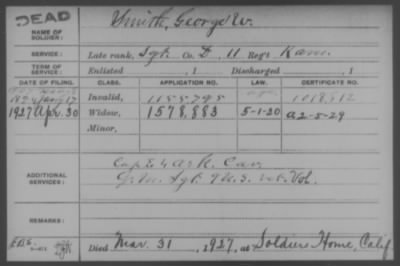 DEAD
NAME OF SOLDIER: Smith, George W.
SERVICE: Late rank, Sgt. Co. D 11 Reg't Kans.
TERM OF SERVICE: Enlisted , 1 Discharged , 1
DATE OF FILING. CLASS. APPLICATION NO. LAW. CERTIFICATE NO.
Invalid, 1155795 1018912
1927 Apr. 30 Widow, 1578,883 5-1-20 A2-5-29
Minor,
ADDITIONAL SERVICES: Cap. E 4 Ark. Cav.
Q.M. Sgt. U.S. Vet. Vol.
REMARKS:
Died Mar. 31, 1927, at Soldiers Home, Calif